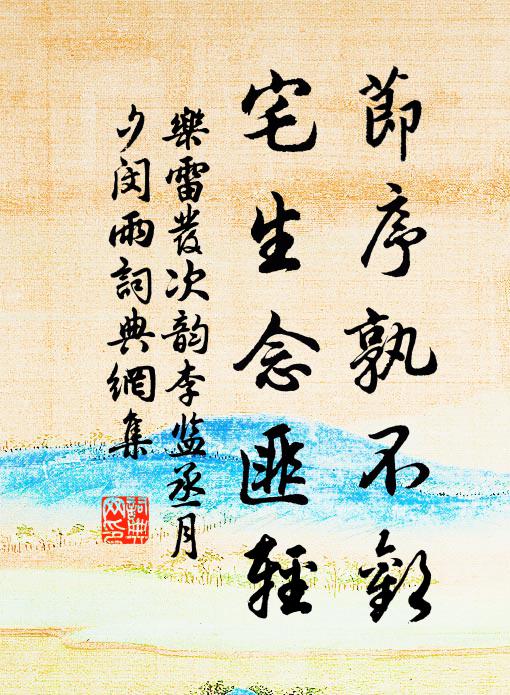 節序孰不歡
宅生念匪輕
樂雷發次韵李监丞月
夕闵雨詞典網集